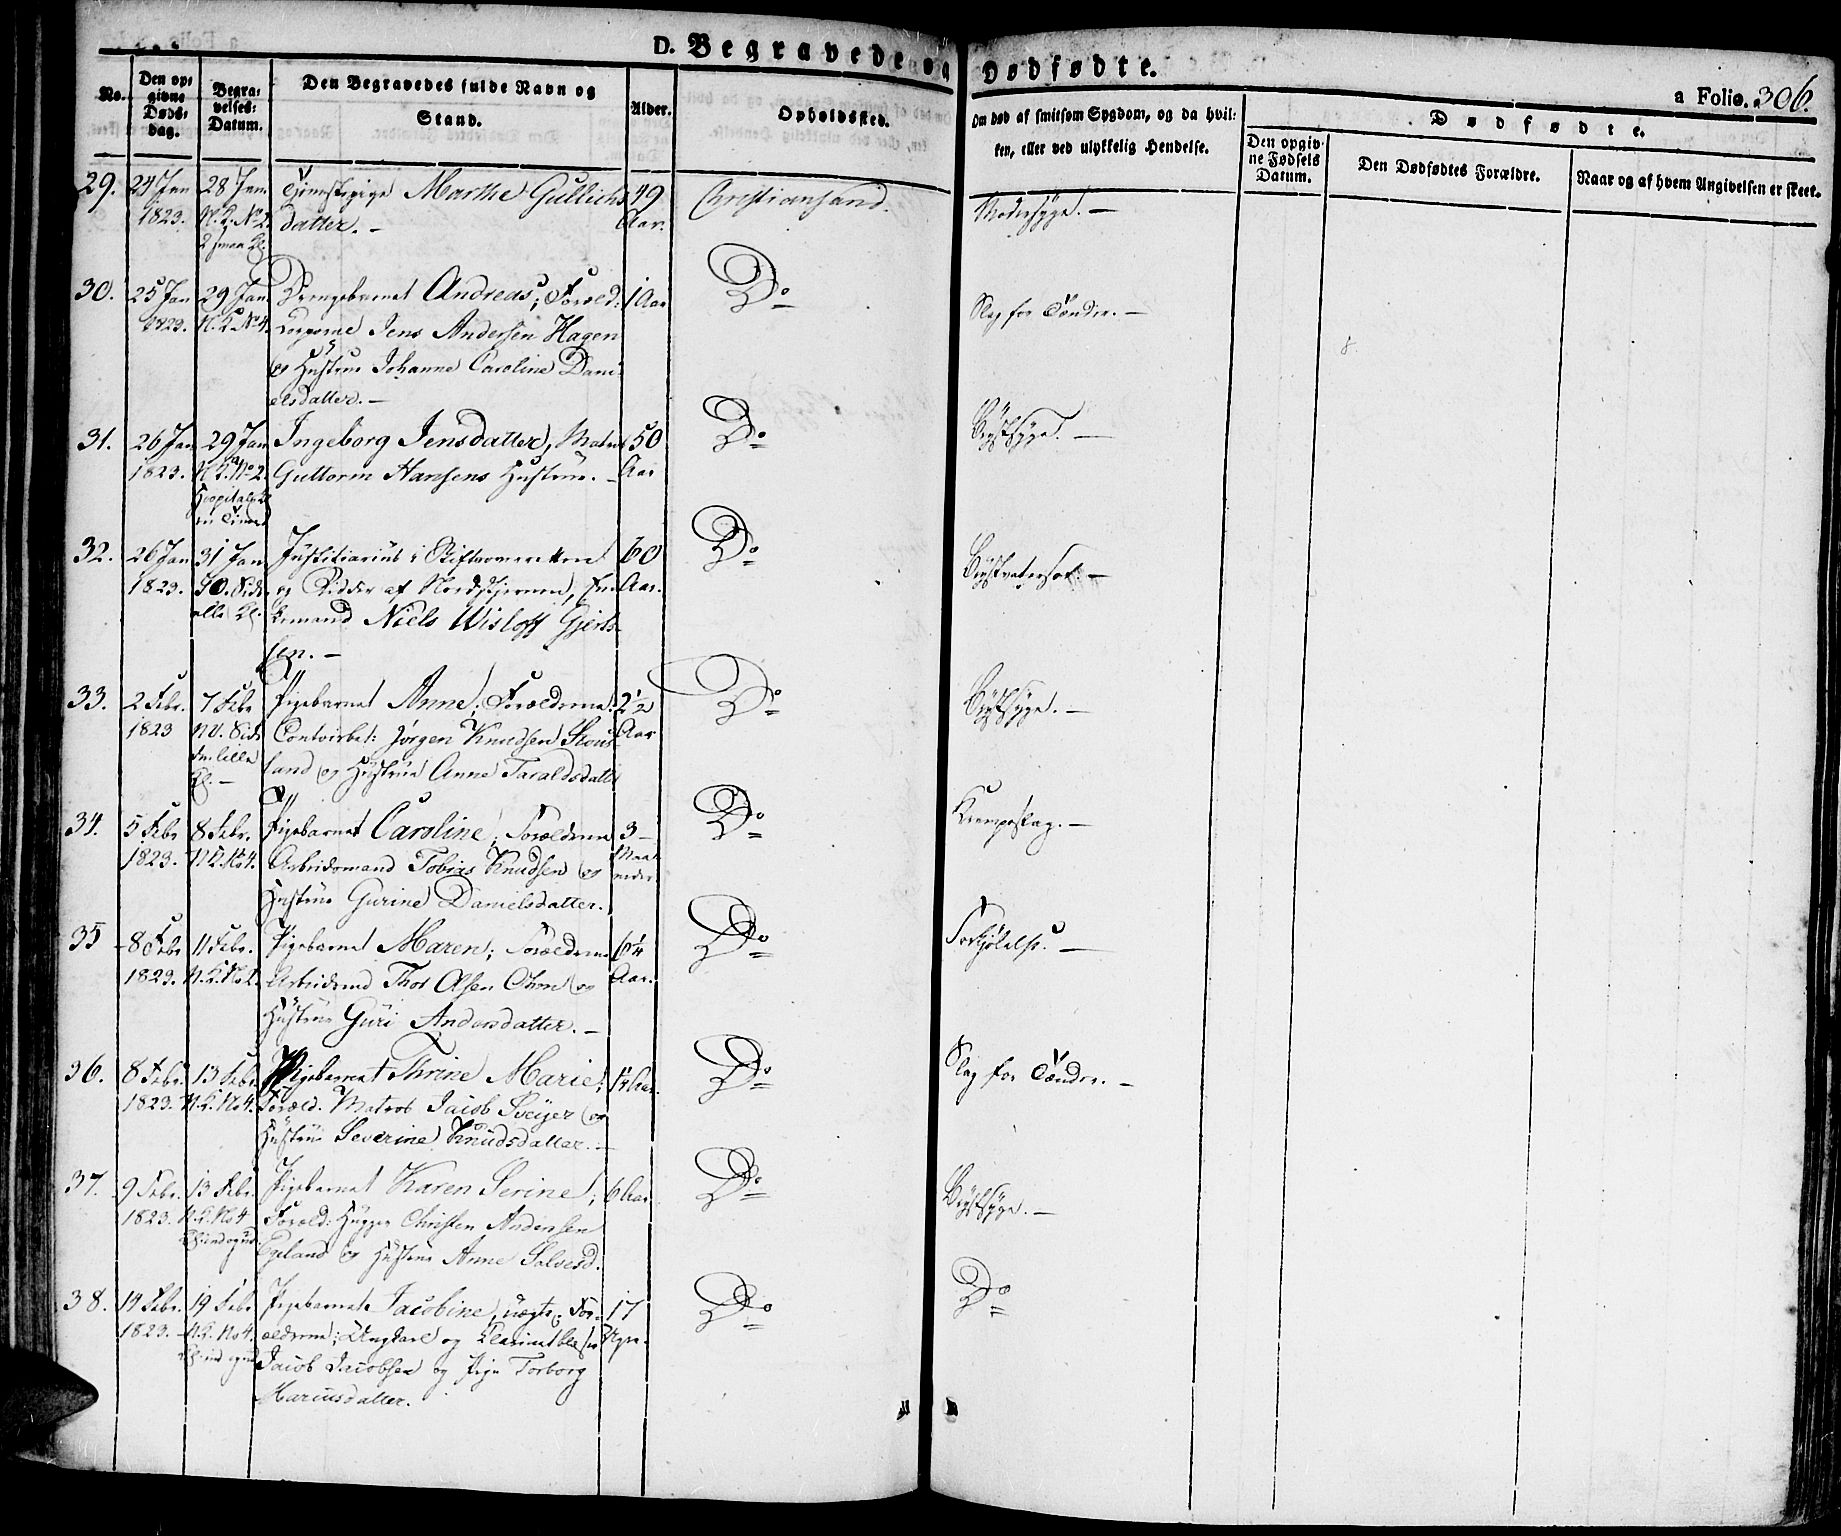 D. Begravede og Dødfødte.
a Folio. 306.
No.
Den opgivne Døds-dag.
Begravelses-Datum.
Den Begravedes fulde Navn og Stand.
Alder.
Opholdssted.
Om død af smitsom Sygdom, og da hvilken, eller ved ulykkelig Hendelse.
Dødfødte.
Den opgivne Fødsels Datum.
Den Dødfødtes Forældre.
Naar og af hvem Angivelsen er skeet.
29. 24 Jan 28 Jan. Tjenestepige Marthe Gullichs 49 Christiansand.
1823. N.K. No 2. datter. — Aar.
30. 25 Jan 29 Jan. Drengebarnet Andreas; Foræld: 1 Aar Do Slag for Tænder. —
1823. N.K. No 4. Jens Andersen Hagen
og Hustrue Johanne Caroline Dani-
elsdatter. —
31. 26 Jan 29 Jan Ingeborg Jensdatter, Matros 50 Do Brystsyge. —
1823. N.K. No 2. Guttorm Hansens Hustrue. — Aar
32. 26 Jan 31 Jan Justitiarius i Stiftsoverretten 60 Do Brystvatersot. —
1823. og Ridder af Nordstjernen, En- Aar.
kemand Niels Wisloff Gjert-
sen. —
33. 2 Febr. 7 Febr Pigebarnet Anne; Forældrene: 2½ Do Brystsyge. —
1823 Contoirbet: Jørgen Knudsen Skous- Aar
land og Hustrue Anne Taraldsdatter
34. 5 Febr 8 Febr. Pigebarnet Caroline; Forældrene 3 Do Krampeslag. —
1823. N.K. No 4. Arbeidsmand Tobias Knudsen og Maa-
Hustrue Gurine Danielsdatter. neder.
35 8 Febr 11 Febr. Pigebarnet Maren; Forældrene 6¼ Do Forkjølelse. —
1823. Arbeidsmd Thor Olsen og Aar.
Hustrue Guri Andersdatter. —
36. 8 Febr. 13 Febr. Pigebarnet Thrine Marie; Do Slag for Tænder. —
1823. N.K. No 4. Foræld. Matros Jacob og
Hustrue Severine Knudsdatter. —
37. 9 Febr. 13 Febr. Pigebarnet Karen Serine; 6 Aar. Do Brystsyge. —
1823. N.K. No 4 Foræld: Christen Andersen
Egeland og Hustrue Anne Salvesd.
38. 14 Febr. 19 Febr Pigebarnet Jacobine, uægte; For- 17 Do Do
1823. N.K. No 4. ældrene; Ungkarl og Clarinetblæser Uger.
Jacob Jacobsen og Pige Torborg
Mariusdatter.